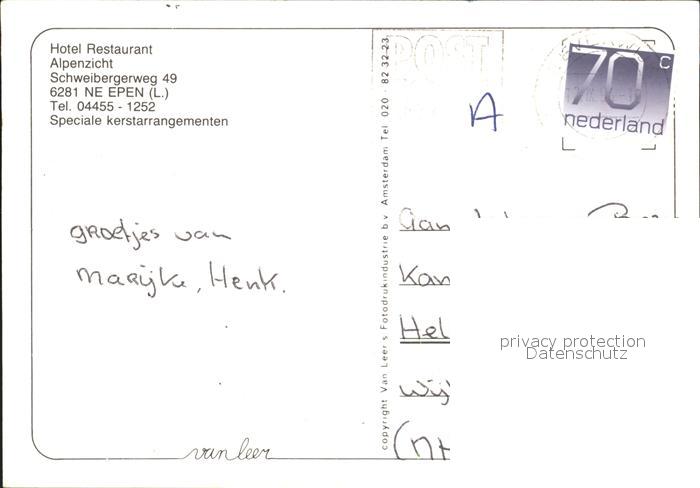 Hotel Restaurant
Alpenzicht
Schweibergerweg 49
6281 NE EPEN (L.)
Tel. 04455 - 1252
Speciale kerstarrangementen
groetjes van
Marijke, Henk.
van leer
copyright Van Leer's Fotodrukindustrie b.v. Amsterdam Tel. 020 - 82 32 23
POST
A
70 c
nederland
Aan
Kan
Hel
wij
privacy protection
Datenschutz